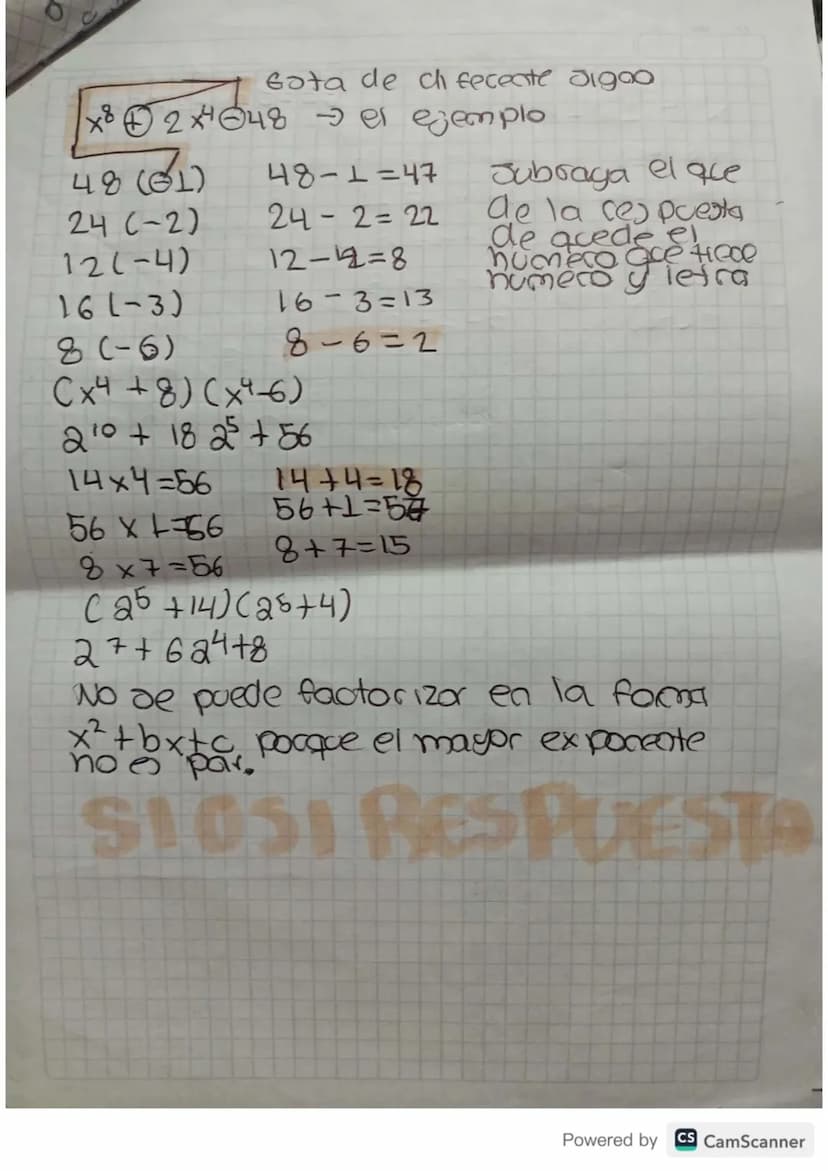 Gota de diferente signo
x⁸ + 2x⁴ - 48 → el ejemplo
48 (-1) 48 - 1 = 47 subraya el que
24 (-2) 24 - 2 = 22 de la respuesta
de acede el
12 (-4) 12 - 4 = 8 numero que tiene
numero y letra
16 (-3) 16 - 3 = 13
8 (-6) 8 - 6 = 2
(x⁴ + 8) (x⁴ - 6)
a¹⁰ + 18 a⁵ + 56
14 x 4 = 56 14 + 4 = 18
56 x 1 = 56 56 + 1 = 57
8 x 7 = 56 8 + 7 = 15
(a⁵ + 14) (a⁵ + 4)
a⁷ + 6a⁴ + 8
No se puede factorizar en la forma
x² + bx + c porque el mayor exponente
no es par.
SI O SI RESPUESTA
Powered by CS CamScanner